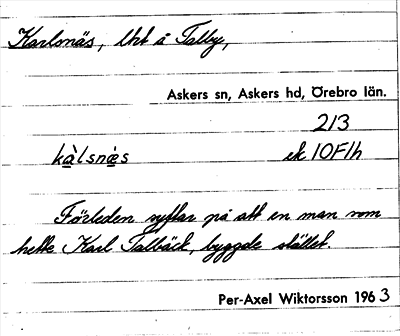 Karlsnäs, lht å Talby,
Askers sn, Askers hd, Örebro län.
213
kàlsnæ̀s ek 10F1h
Förleden syftar på att en man som
hette Karl Talbäck, byggde stället.
Per-Axel Wiktorsson 1963